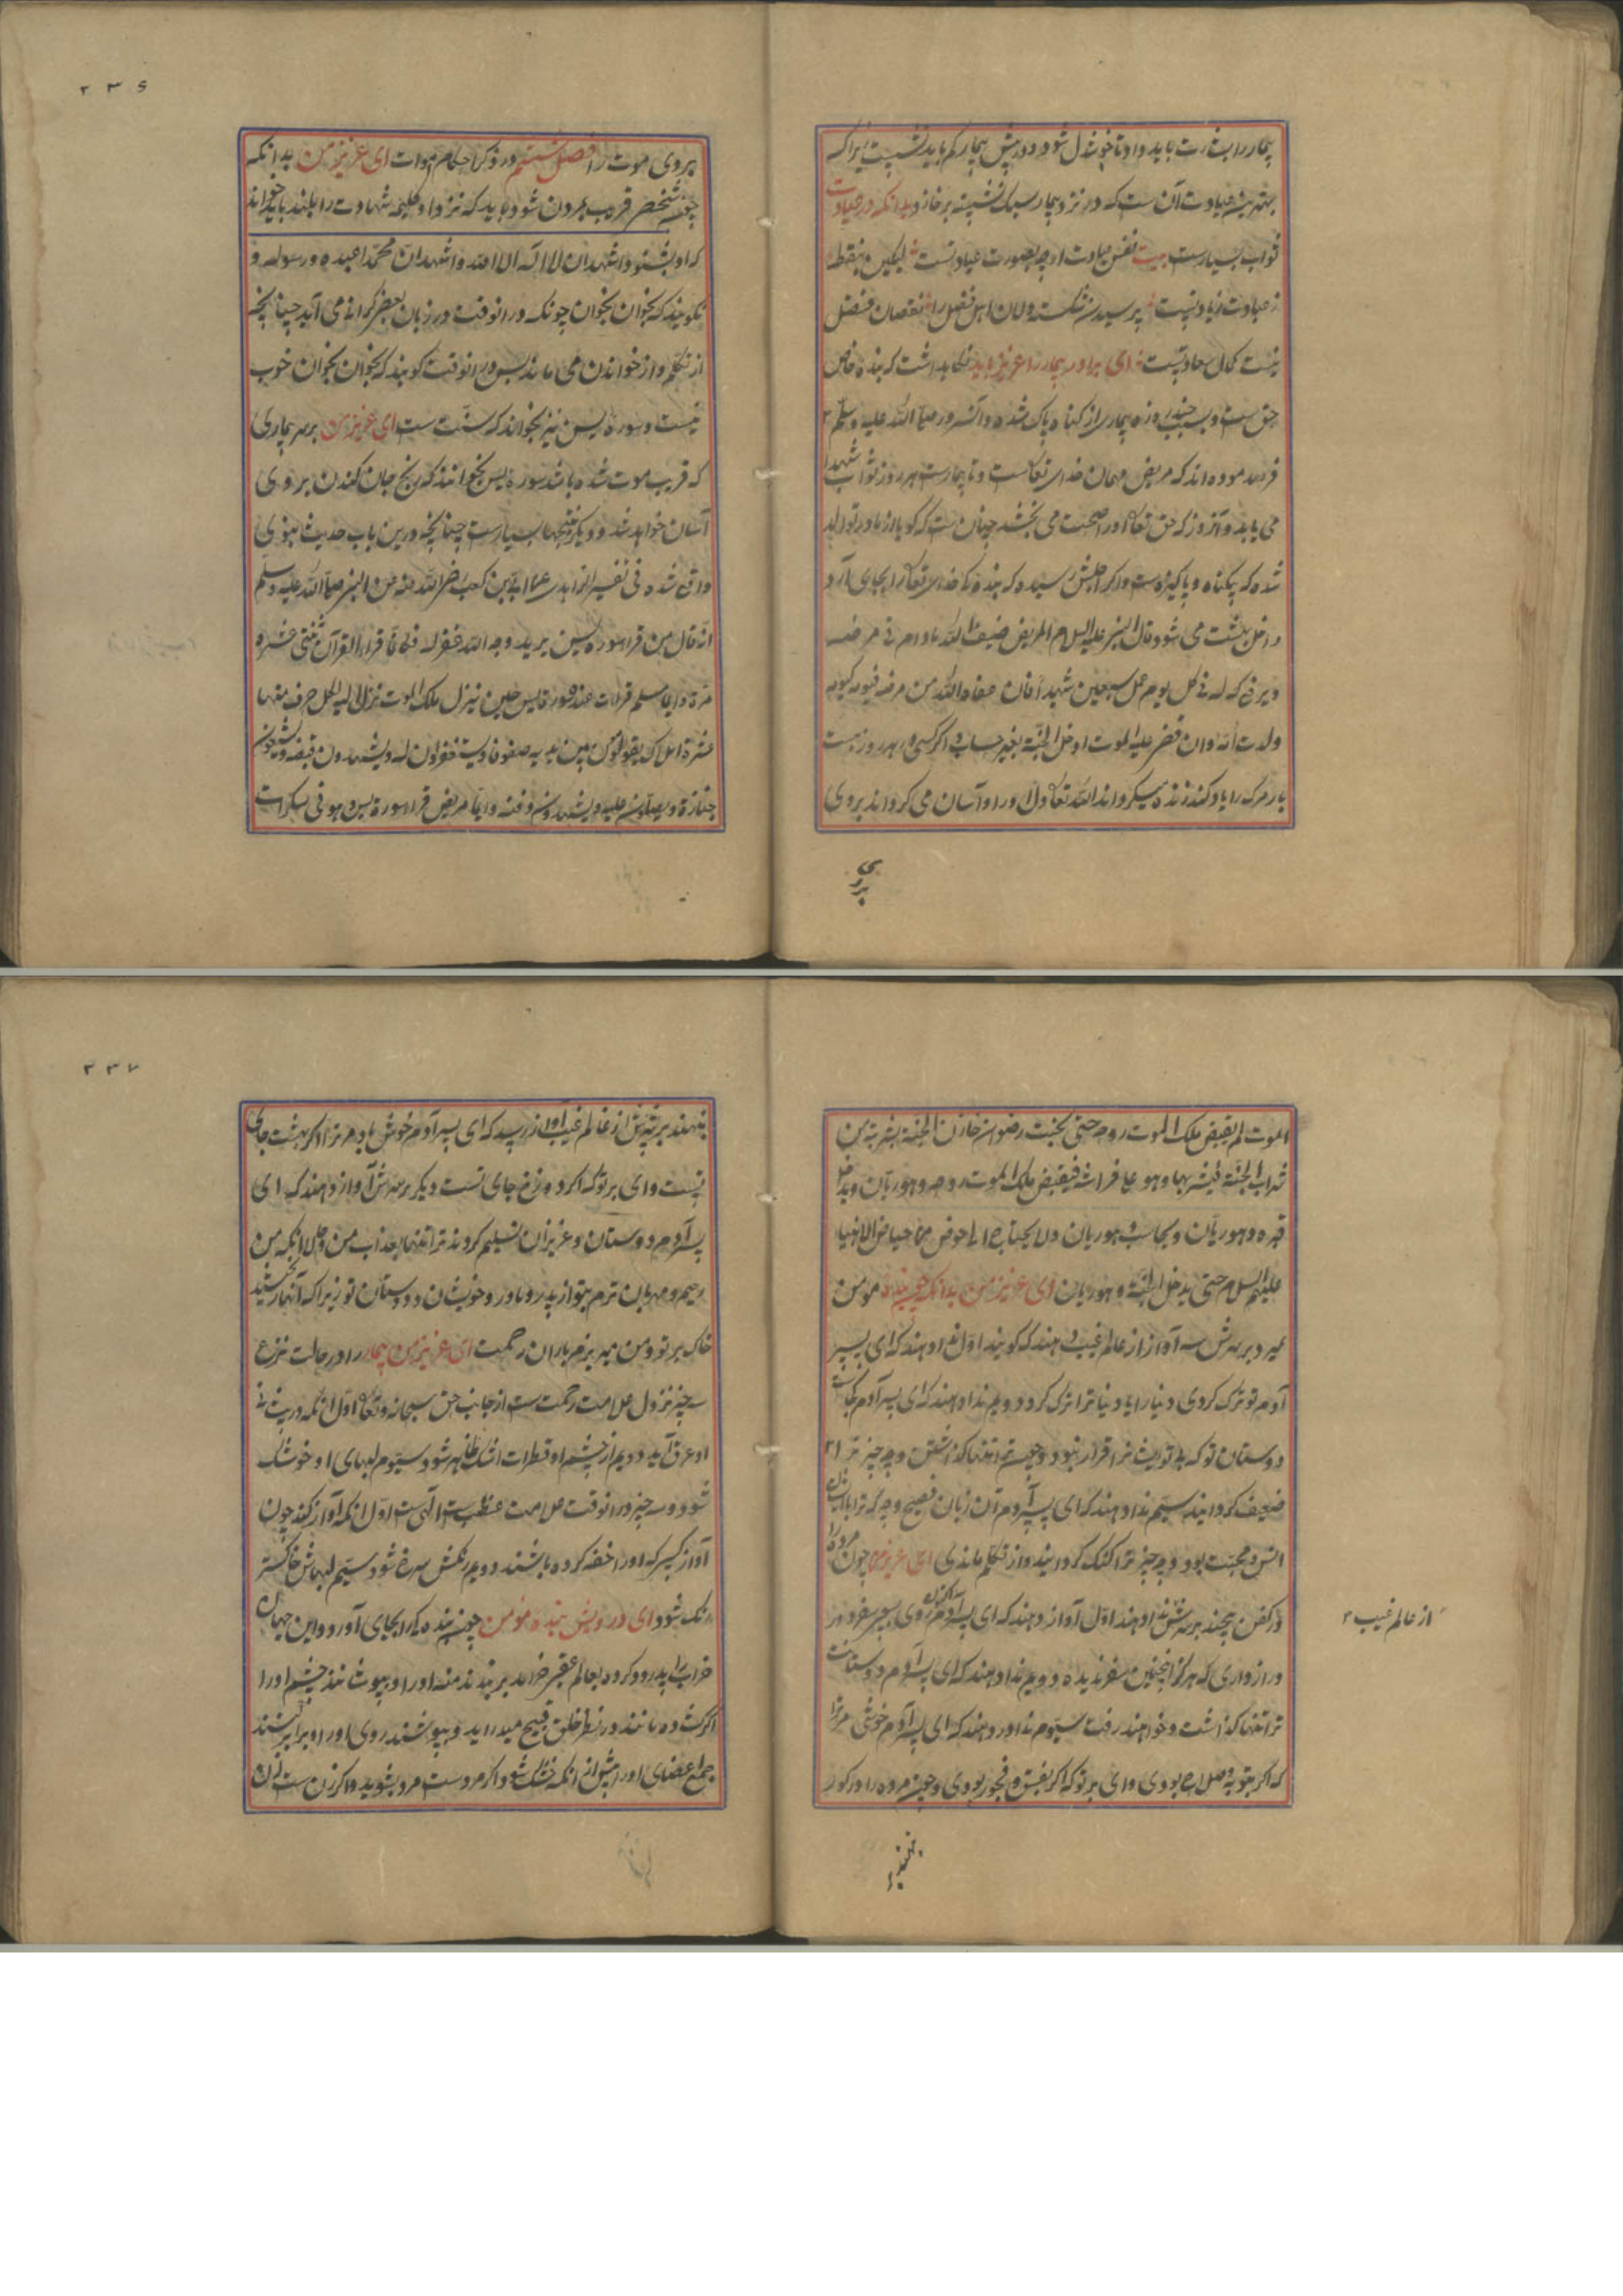 بیمار را بشارت باید داد و تا خوشدل شود و در پیش بیمار کم باید نشست زیراکه
بهترین عیادت آن ست که در نزد بیمار سبک نشیند برخیزد بدانکه در عیادت
ثواب بسیارست بیت نفس عیادت ارچه بصورت عیادتست لیکن بنقطه
ز عبادت زیادتست پرسیدن شکسته دلان اهل فضل را نقصان فضل
نیست کمال سعادتست ای برادر بیمار را عزیز باید نگاه داشت که بنده خاص
حق ست و بسبب چند روزه بیماری از گناه پاک شده و آنسرور صلی الله علیه وسلم
فرموده اند که مریض مهمان خدای تعالی ست و تا بیمارست هر روز ثواب شهدا
می یابد و آنروز که حق تعالی او را صحت می بخشد چنان ست که گویا از مادر تولد
شده که بیگناه و پاکیزه ست و اگر اجلش رسیده که بنده خدای تعالی را بجای آرد
داخل بهشت می شود قال النبی علیه السلام المریض ضیف الله مادام فی مرضه
ویرفع له فی کل یوم عمل سبعین شهیدا فان عفاه الله من مرضه فیوم کیوم
ولدت امه وان قضی علیه الموت ادخل الجنة بغیر حساب و اگر کسی هر روز بیست
بار مرگ را یاد کند زنده میگرداند الله تعالی دل او را و آسان می گرداند بروی
بروی
۲۳۶
بروی موت را فصل ششم در ذکر احکام اموات ای عزیز من بدانکه
چون شخص قریب بمردن شود باید که نزد او کلمه شهادت را بلند باید خواند
که او بشنود اشهد ان لا اله الا الله واشهد ان محمدا عبده ورسوله و
نگویند که بخوان بخوان چونکه در آنوقت در زبان بعضی گرانی می آید چنانچه
از تکلم و از خواندن می ماند پس در آنوقت گویند که بخوان بخوان خوب
نیست و سوره یس نیز بخواند که سنت ست ای عزیز من بر سر بیماری
که قریب موت شده باشد سوره یس بخوانند که رنج جان کندن بر وی
آسان خواهد شد و دیگر نتیجها بسیارست چنانچه درین باب حدیث نبوی
واقع شده فی تفسیر الزاهدی عن ابی بن کعب رضی الله عنه عن النبی صلی الله علیه وسلم
انه قال من قرا سوره یس یرید وجه الله غفر له فکانما قراء القران اثنتی عشره
مرة وایما مسلم قرات عنده سورة یس حین ینزل ملک الموت نزل الیه لکل حرف منها
عشرة املاک یقومون بین یدیه صفوفا ویستغفرون له ویشهدون قبضه ویشیعون
جنازة ویصلون علیه ویشهدون دفنه وایما مریض قرا سورة یس وهو فی سکرات
الموت لم یقبض ملک الموت روحه حتی یجیئه رضوان خازن الجنة بشربة من
شراب الجنة فیشربها وهو علی فراشه فیقبض ملک الموت روحه وهو ریان ویدخل
قبره وهو ریان ویحاسب وهو ریان ولا یحتاج الی حوض من حیاض الانبیاء
علیهم السلام حتی یدخل الجنة وهو ریان ای عزیز من بدانکه چون بنده مومن
بمیرد بر سرش سه آواز از عالم غیب دهند که گویند اول ندا دهند که ای پسر
آدم تو ترک کردی دنیا را یا دنیا ترا ترک کرد دویم ندا دهند که ای پسر آدم کجاست
دوستان تو که بی تو یشان را قرار نبود و چون ترا تنها گذاشتن و چه چیز ترا
ضعیف گردانید سیم ندا دهند که ای پسر آدم آن زبان فصیح و چه که ترا با ایشان
انس و محبت بود و چه چیز ترا گنگ گردانید و از تکلم ماندی ای عزیز من چون مرده را
در کفن پیچند بر سرش ندا دهند اول آواز دهند که ای پسر آدم اکنون میروی بسفر و سفر
دراز داری که هرگز اینچنین سفر ندیده دویم ندا دهند که ای پسر آدم دوستانت
ترا تنها گذاشت و خواهند رفت سیوم ندا در دهند که ای پسر آدم خوشی مر ترا
که اگر بتوبه و صلاح بودی وای بر تو که اگر بفسق و فجور بودی و چون مرده را در گور
از عالم غیب
بنهند
۲۳۷
بنهند بر سرش از عالم غیب آواز رسد که ای پسر آدم خوش باد مر ترا اگر بهشت جای
تست وای بر تو که اگر دوزخ جای تست دیگر بر سرش آواز دهند که ای
پسر آدم دوستان و عزیزان تسلیم کردند ترا تنها بعذاب من و حال آنکه من
رحیم و مهربان ترم بتو از پدر و مادر و خویشان و دوستان تو زیراکه آنها بخشید
خاک بر تو و من میریزم باران رحمت ای عزیز من بیمار را در حالت نزع
سه چیز نزول علامت رحمت ست از جانب حق سبحانه وتعالی اول آنکه در پیشانی
او عرق آید دویم از چشم او قطرات اشک ظاهر شود سیوم لبهای او خشک
شود و سه چیز در آنوقت علامت غضب الهی ست اول آنکه آواز کند چون
آواز کسی که او را خفه کرده باشند دویم رنگش سرخ شود سیم لبهاش خاکستر
رنگ شود ای درویش بنده مؤمن چون بنده کی را بجای آورد و این جهان
خراب را پدرود کرده بعالم عقبی خرامد بر بندند دهنه او را و بپوشانند چشم او را
اگر گشاده ماند در نظر خلق قبیح میدراید و بپوشند روی او را و برابر کنند
جمیع اعضای او را پیش از آنکه خشک شود اگر مردست مرد بشوید و اگر زن ست زن